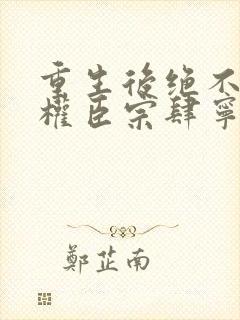 重生後绝不
權臣宗肆寧
鄭芷南